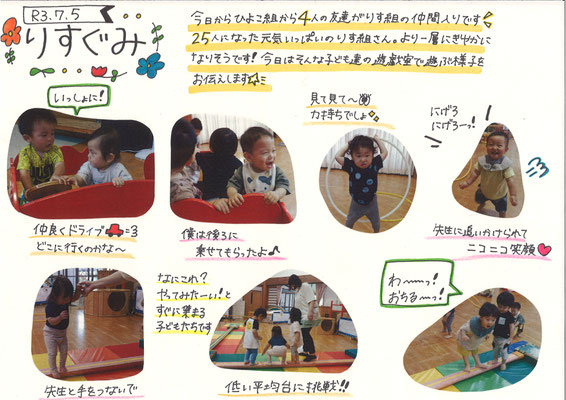 R3.7.5
りすぐみ
今日からひよこ組から4人の友達がりす組の仲間入りです!
25人になった元気いっぱいのりす組さん。より一層にぎやかに
なりそうです!今日はそんな子ども達の遊戯室で遊ぶ様子を
お伝えします☆
いっしょに!
仲良くドライブ=3
どこに行くのかな～
僕は後ろに
乗せてもらったよ♪
見て見て～
力持ちでしょ
にげろ
にげろーっ!
先生に追いかけられて
ニコニコ笑顔♥
先生と手をつないで
なにこれ?
やってみたーい!と
すぐに集まる
子どもたちです
低い平均台に挑戦!!
わ～っ!
おちる～っ!